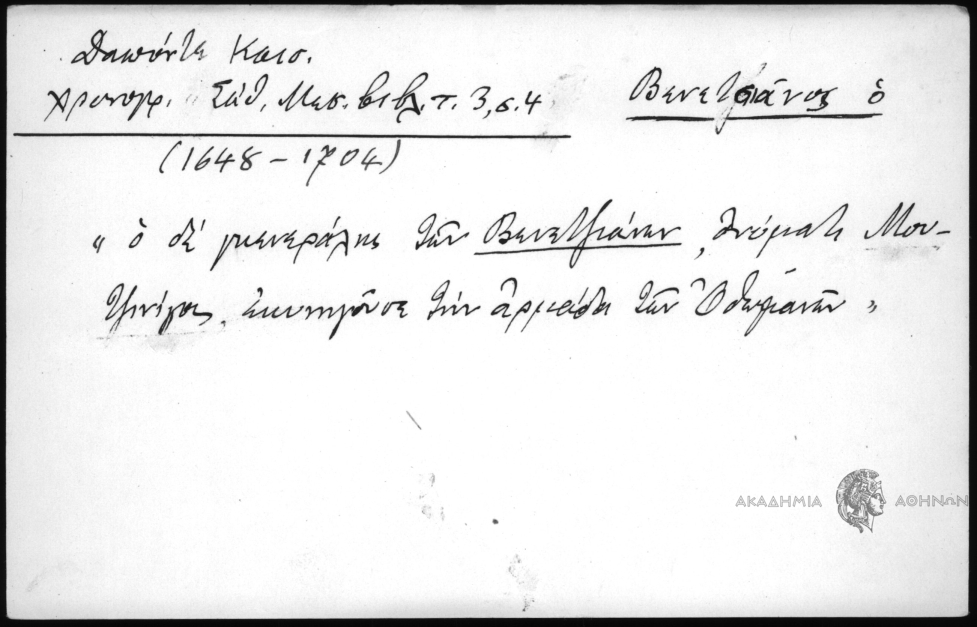 Δαπόντε Καισ.
Χρονογρ. Σάθ. Μεσ. βιβλ. τ. 3, σ. 4
Βενετσιᾶνος ὁ
(1648 – 1704)
" ὁ δέ γκενεράλης τῶν Βενετζιάνων, ὀνόματι Μου-
τζινίγος, ἐκυνηγοῦσε τήν ἁρμάδα τῶν Ὀθωμανῶν "
ΑΚΑΔΗΜΙΑ ΑΘΗΝΩΝ